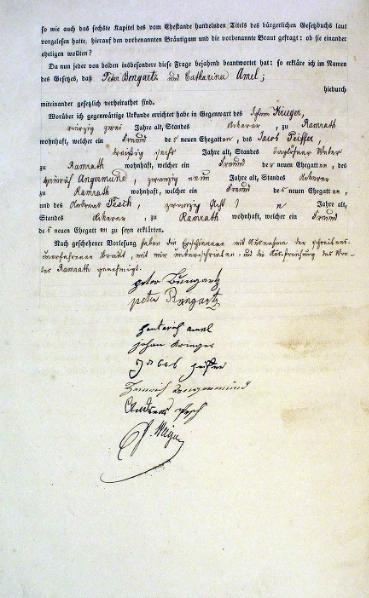 so wie auch das sechste Kapitel des vom Ehestande handelnden Titels des bürgerlichen Gesetzbuchs laut
vorgelesen hatte, hierauf den vorbenannten Bräutigam und die vorbenannte Braut gefragt: ob sie einander
eheligen wollten?
Da nun jeder von beiden insbesondere diese Frage bejahend beantwortet hat: so erkläre ich im Namen
des Gesetzes, daß Peter Bongartz und Catharina Amel;
hiedurch
miteinander gesetzlich verheirathet sind.
Worüber ich gegenwärtige Urkunde errichtet habe in Gegenwart des Johann Krueger,
vierzig zwei Jahre alt, Standes Ackerer, zu Ramrath
wohnhaft, welcher ein Freund der neuen Ehegatten, des Jacob Peiffer,
dreißig sechs Jahre alt, Standes Weber
zu Ramrath wohnhaft, welcher ein Freund der neuen Ehegatten, des
Heinrich Angermund, zwanzig neun Jahre alt, Standes Ackerer
zu Ramrath wohnhaft, welcher ein Freund der neuen Ehegatten,
und des Andreas Pesch, zwanzig acht Jahre alt,
Standes Ackerer, zu Ramrath wohnhaft, welcher ein Freund
der neuen Ehegatten zu seyn erklärten.
Nach geschehener Vorlesung haben die Erschienenen mit Ausnahme der schreibens
unerfahrenen Braut, mit mir unterschrieben, und die
Ramrath genehmigt.
peter Bungartz
peter Bongartz
heinrich amel
johan krueger
Jacob
Heinrich Angermund
Andreas Pesch